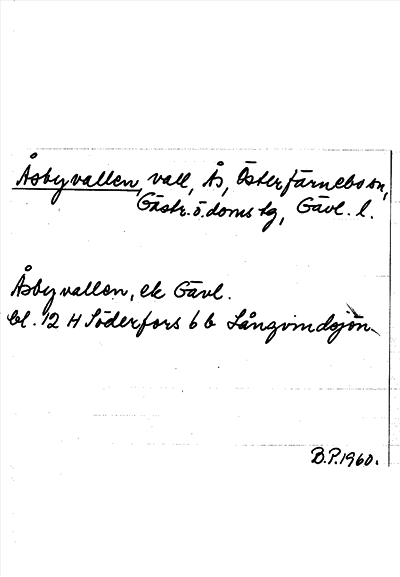 Åsbyvallen, vall, Ås, Österfärnebo sn,
Gästr. ö. doms lg, Gävl. l.
Åsbyvallen, ek Gävl.
bl. 12 H Söderfors 6 b Långvindsjön
B.P. 1960.